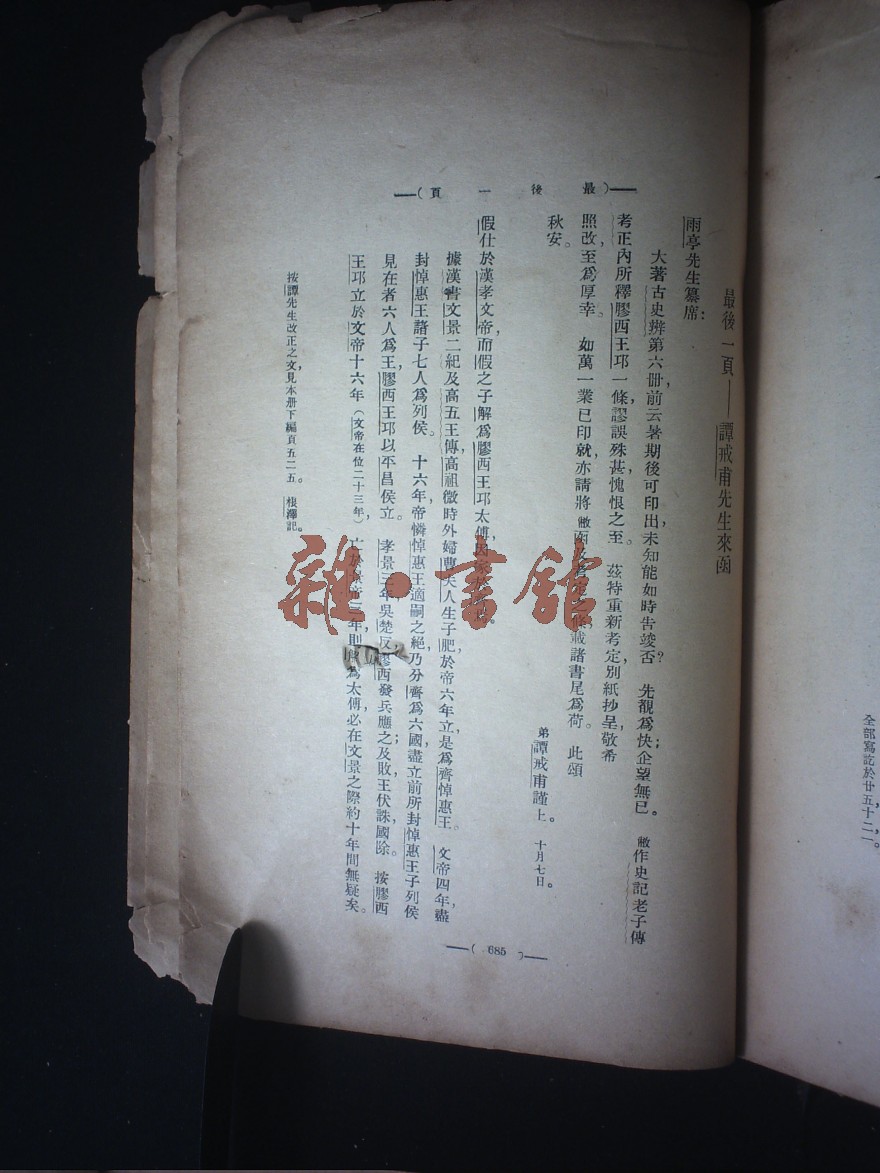 全部寫訖於廿五，十二，一。
最後一頁——譚戒甫先生來函
雨亭先生纂席：
大著古史辨第六册，前云暑期後可印出，未知能如時告竣否？ 先覩爲快；企望無已。 敝作史記老子傳
考正內所釋膠西王邛一條，謬誤殊甚，愧恨之至。 茲特重新考定，別紙抄呈，敬希
照改，至爲厚幸。 如萬一業已印就，亦請將敝函及考定之條，載諸書尾爲荷。 此頌
秋安。
弟譚戒甫謹上。 十月七日。
假仕於漢孝文帝，而假之子解爲膠西王邛太傅，因家於齊焉。
據漢書文景二紀及高五王傳，高祖微時外婦曹夫人生子肥，於帝六年立，是爲齊悼惠王。 文帝四年，盡
封悼惠王諸子七人爲列侯。 十六年，帝憐悼惠王適嗣之絕，乃分齊爲六國，盡立前所封悼惠王子列侯
見在者六人爲王，膠西王邛以平昌侯立。 孝景三年，吳楚反，膠西發兵應之；及敗，王伏誅，國除。 按膠西
王邛立於文帝十六年（文帝在位二十三年），亡於景帝三年，則解爲太傅必在文景之際約十年間無疑矣。
按譚先生改正之文，見本册下編頁五二五。 根澤記。
（最後一頁）
（ 685 ）
雜·書館